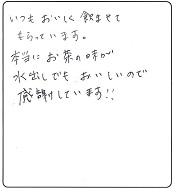 いつもおいしく飲ませて
もらっています。
本当にお茶の味が
水出しでもおいしいので
感謝しています!!